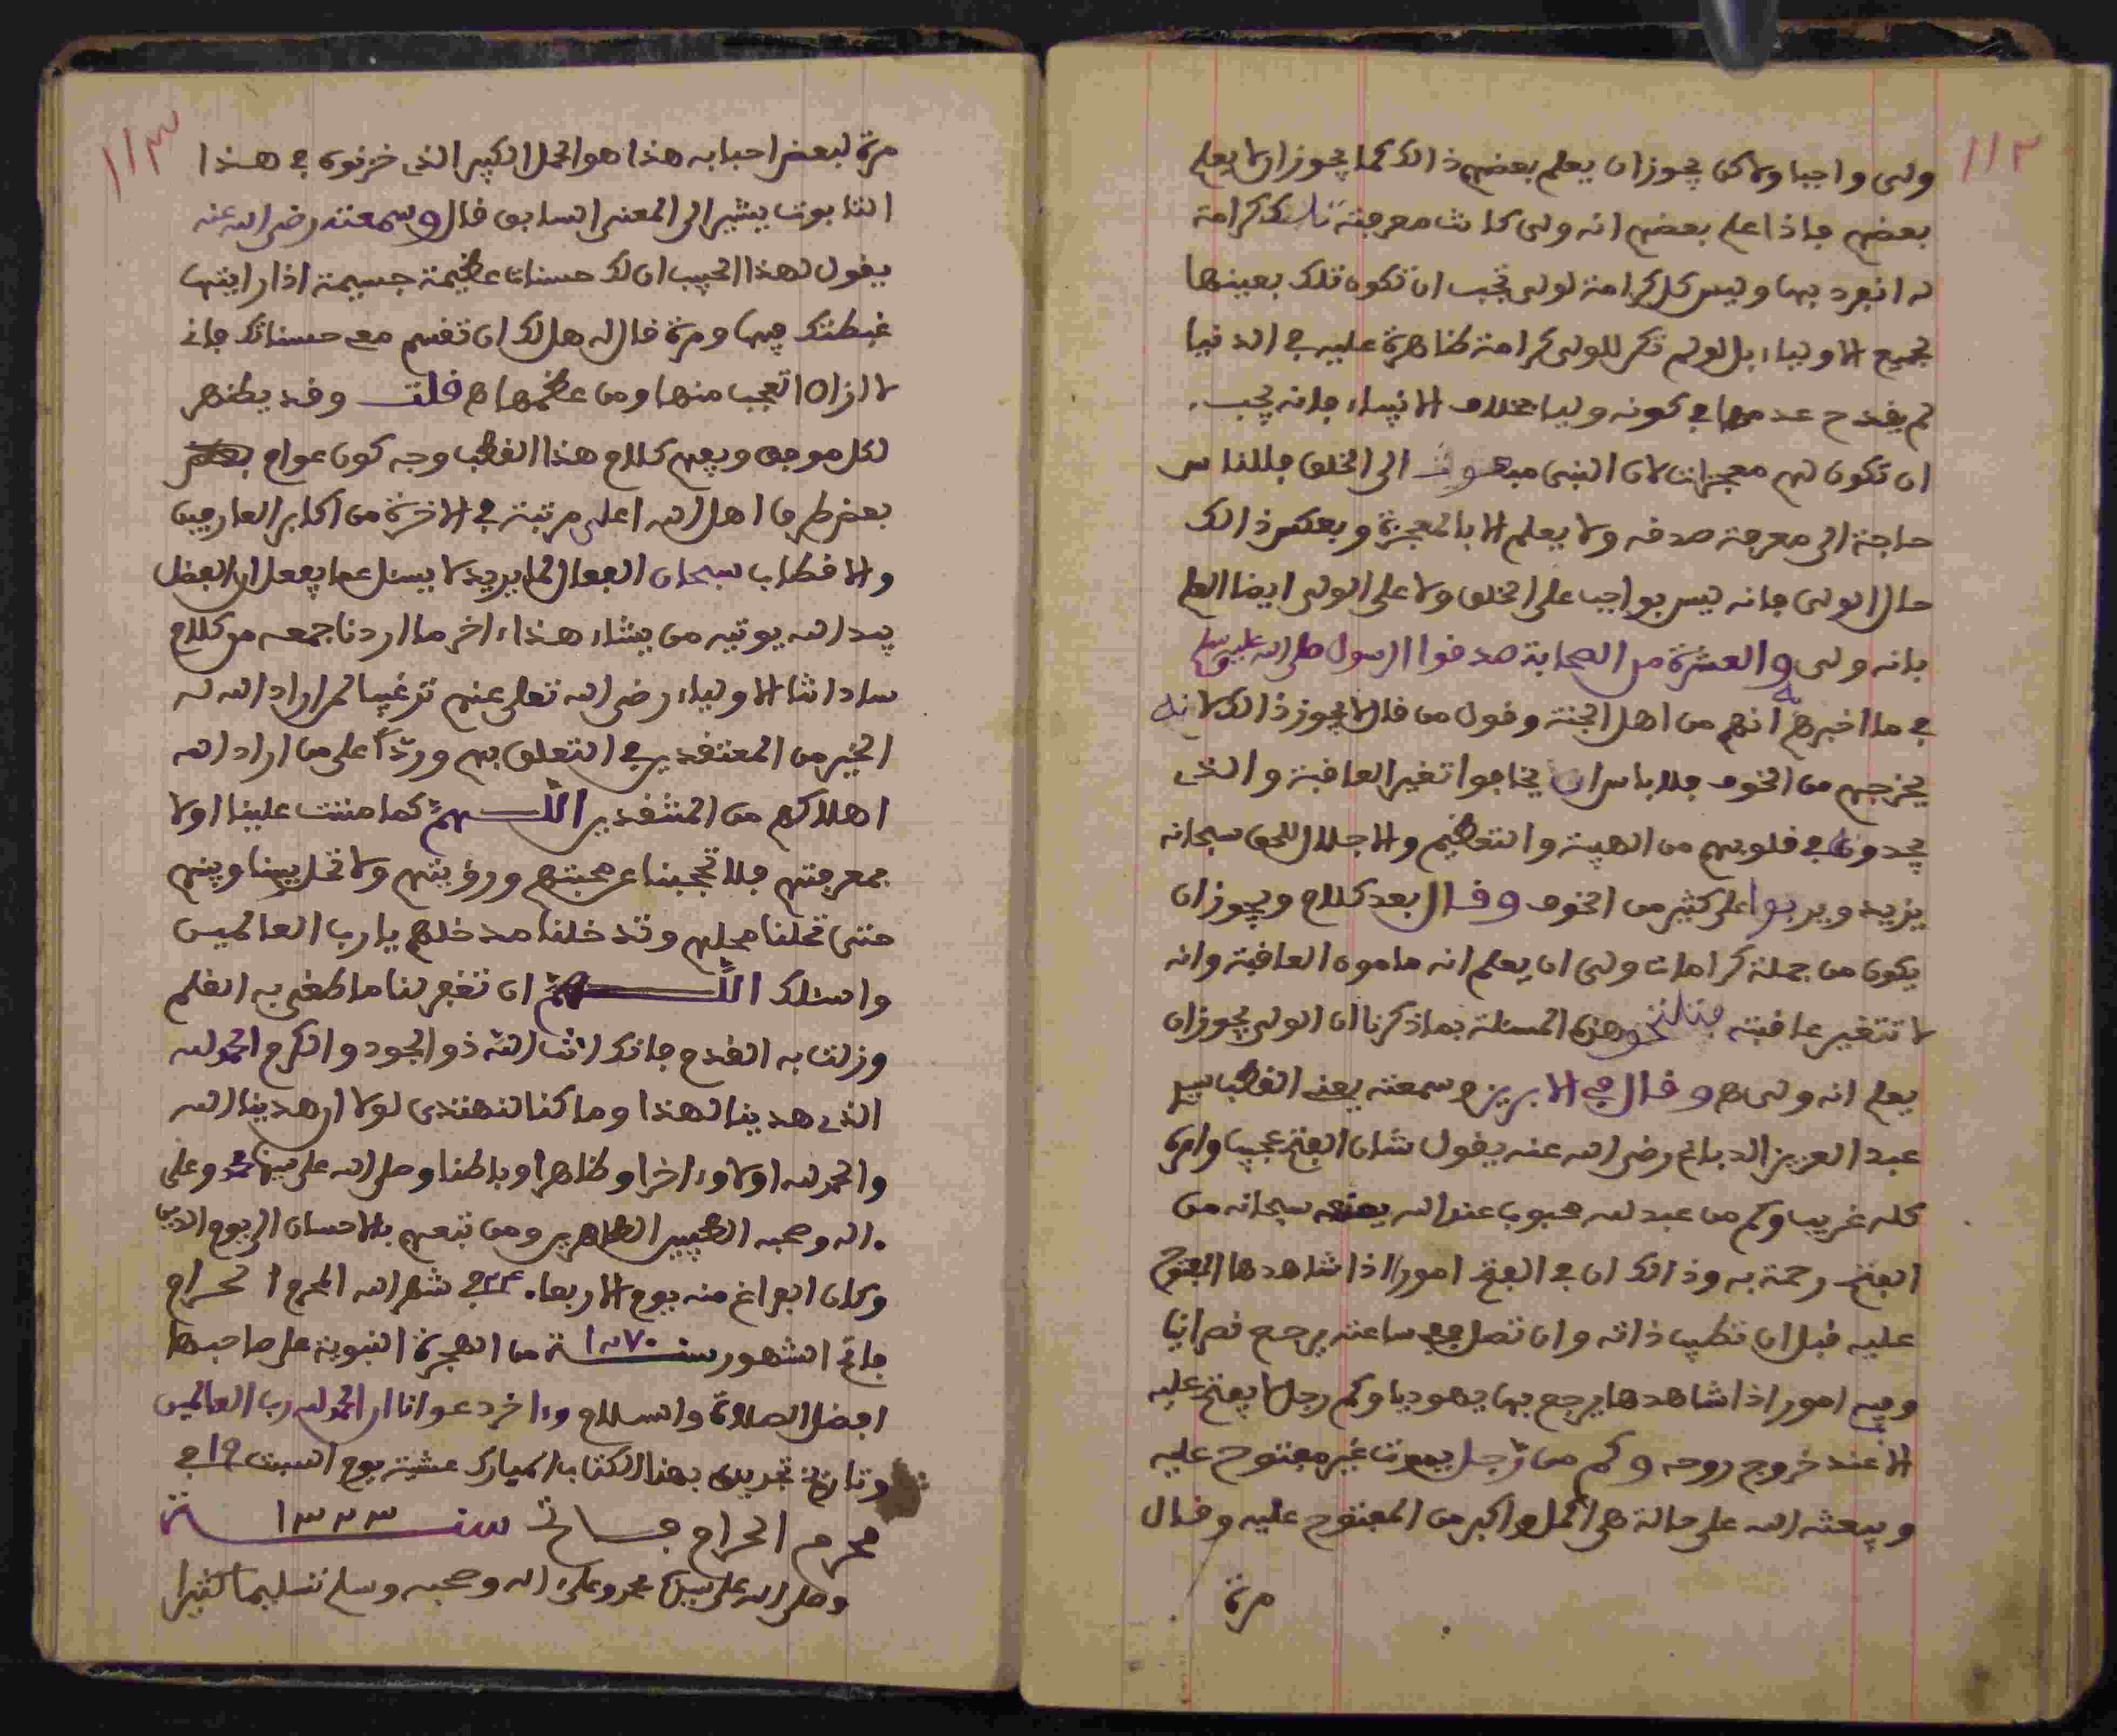 ١١٢
ولى واجبا ولاكن يجوز ان يعلم بعضهم ذالك كما يجوز ان لا يعلم
بعضهم فاذا علم بعضهم انه ولى كانت معرفته تلك كرامة
له انفرد بها وليس كل كرامة لولى تجب ان تكون تلك بعينها
لجميع الاولياء بل لو لم تكن للولى كرامة ظاهرة عليه فى الدنيا
لم يقدح عدمها فى كونه وليا بخلاف الانبياء فانه يجب
ان تكون لهم معجزات لان النبى مبعوث الى الخلق فللناس
حاجة الى معرفة صدقه ولا يعلم الا بالمعجزة وبعكس ذالك
حال الولى فانه ليس بواجب على الخلق ولا على الولى ايضا العلم
بانه ولى والعشرة من الصحابة صدقوا الرسول صلى الله عليه وسلم
فى ما اخبرهم به انهم من اهل الجنة وقول من قال لا يجوز ذالك لانه
يخرجهم من الخوف فلا باس ان يخافوا تغير العاقبة والذى
يجدونه فى قلوبهم من الهيبة والتعظيم والاجلال للحق سبحانه
يزيد ويربوا على كثير من الخوف وقال بعد كلام ويجوز ان
يكون من جملة كرامات ولى ان يعلم انه مامون العاقبة وانه
لا تتغير عاقبته هذه المسئلة بما ذكرنا ان الولى يجوز ان
يعلم انه ولى ه وقال فى الابريز وسمعته يعنى القطب
عبد العزيز الدباغ رضى الله عنه يقول شان الفتح عجيب وامره
كله غريب وكم من عبد لله محبوب عند الله يمنعه سبحانه من
الفتح رحمة به وذالك ان فى الفتح امورا اذا شاهدها المفتوح
عليه قبل ان تطيب ذاته وان تصلح ساعته يرجع نصرانيا
وفيه امور اذا شاهدها يرجع بها يهوديا وكم رجل لا يفتح عليه
الا عند خروج روحه وكم من رجل يموت غير مفتوح عليه
ويبعثه الله على حالة هى اكمل واكبر من المفتوح عليه وقال
مرة
١١٣
مرة لبعض احبابه هذا هو الحمل الكبير الذى خزنوه فى هذا
التابوت يشير الى المعنى السابق قال وسمعته رضى الله عنه
يقول لهذا الحبيب ان لك حسنات عظيمة جسيمة اذا رايتها
غبطتك فيها ومرة قال له هل لك ان تقسم معى حسناتك فانى
لا ازال اتعجب منها ومن عظمها ه قلت وقد يظهر
لكل موفق ويفهم كلام هذا القطب وجه كون عوام
بعض طرق اهل الله اعلى مرتبة فى الاخرة من اكابر العارفين
والاقطاب سبحان الفعال لما يريد لا يسئل عما يفعل ان الفضل
بيد الله يوتيه من يشاء هذا ءاخر ما اردنا جمعه من كلام
ساداتنا الاولياء رضى الله تعلى عنهم ترغيبا لمن اراد الله له
الخير من المعتقدين فى التعلق بهم وردّاً على من اراد الله
اهلاكهم من المنتقدين اللهم كما مننت علينا اولا
بمعرفتهم فلا تحجبنا عن محبتهم ورؤيتهم ولا تخل بيننا وبينهم
حتى تحلنا محلهم وتدخلنا مدخلهم يا رب العالمين
واسئلك اللهم ان تغفر لنا ما طغى به القلم
وزلت به القدم فانك انت الله ذو الجود والكرم الحمد لله
الذى هدينا لهذا وما كنا لنهتدى لولا ان هدينا الله
والحمد لله اولا وءاخرا وظاهرا وباطنا وصلى الله على نبينا محمد وعلى
ءاله وصحبه الطيبين الطاهرين ومن تبعهم بالاحسان الى يوم الدين
وكان الفراغ منه يوم الاربعاء ٢٤ فى شهر الله المحرم الحرام
فاتح الشهور سنة ١٢٧٠ من الهجرة النبوية على صاحبها
افضل الصلاة والسلام وءاخر دعوانا ان الحمد لله رب العالمين
وتاريخ تحريرى بهذا الكتاب المبارك عشية يوم السبت ١٩ فى
محرم الحرام فاتح سنة ١٣٢٣
وصلى الله على سيدنا محمد وعلى ءاله وصحبه وسلم تسليما كثيرا